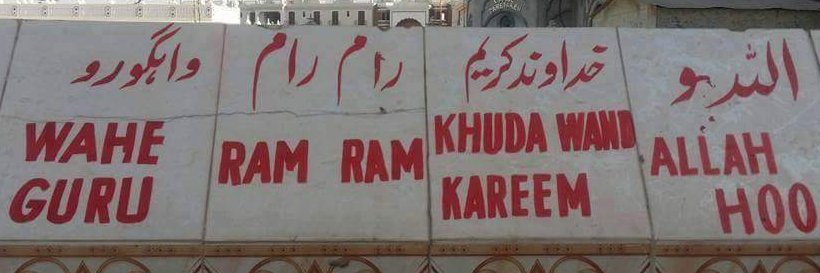 واہگورو
WAHE
GURU
رام رام
RAM RAM
خداوند کریم
KHUDA WAND
KAREEM
اللہ ہو
ALLAH
HOO